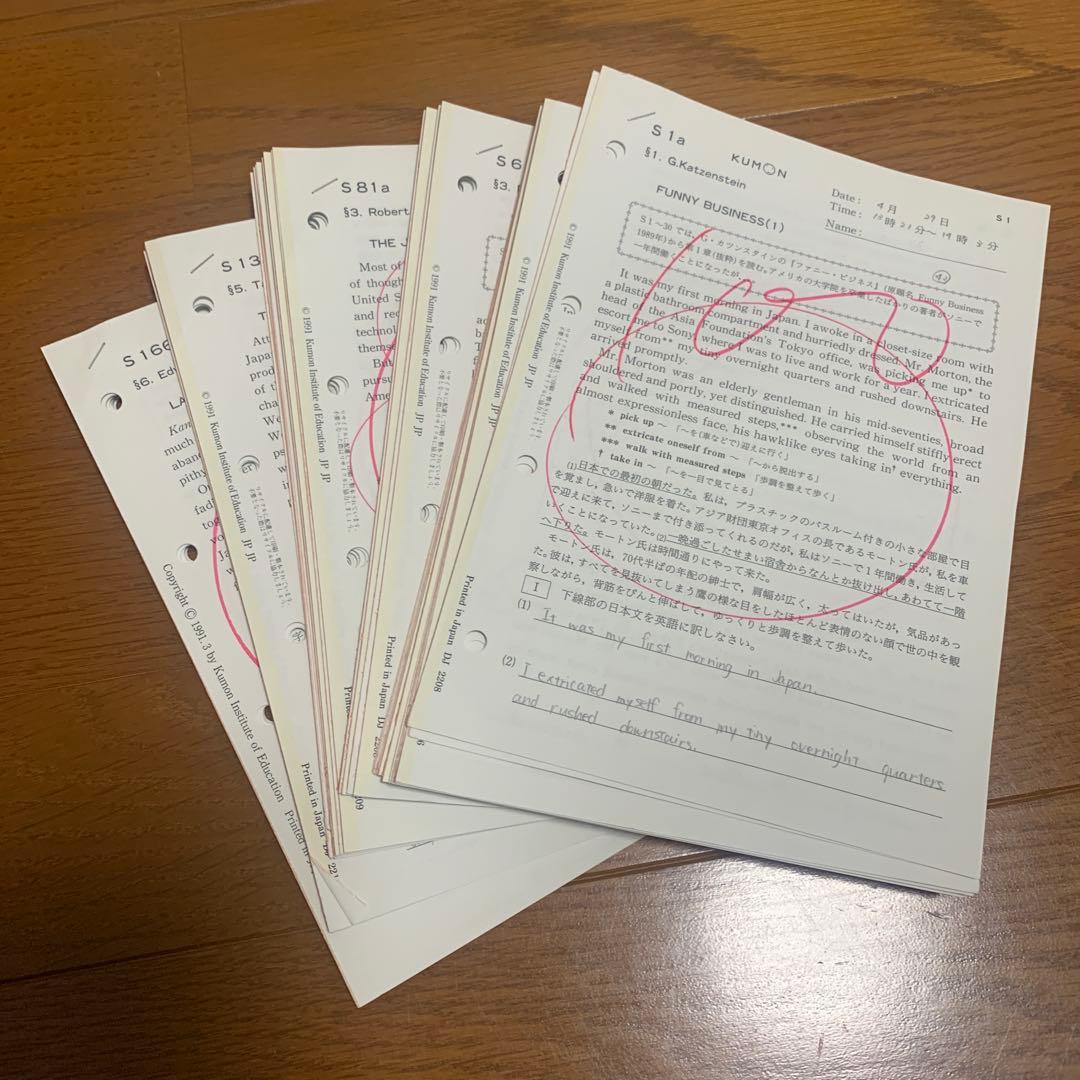 S 1a
KUMON
§1. G.Katzenstein
FUNNY BUSINESS(1)
Date: 4月 29日
S 1
Time: 時21分~19時3分
Name:
S1~30では、G・カツンスタインの『ファニー・ビジネス』(原題名 Funny Business
1989年)から第1章(抜粋)を読む。アメリカの大学院を卒業したばかりの著者がソニーで
一年間働くことになったが、
It was my first morning in Japan. I awoke in a closet-size room with
a plastic bathroom compartment and hurriedly dressed. Mr. Morton, the
head of the Asia Foundation's Tokyo office, was picking me up* to
escort me to Sony, where I was to live and work for a year. I extricated
myself from** my tiny overnight quarters and rushed downstairs. He
arrived promptly.
Mr. Morton was an elderly gentleman in his mid-seventies, broad
shouldered and portly, yet distinguished. He carried himself stiffly erect
and walked with measured steps,*** observing the world from an
almost expressionless face, his hawklike eyes taking in† everything.
* pick up ~ 「~を(車などで)迎えに行く」
** extricate oneself from ~ 「~から脱出する」
*** walk with measured steps 「歩調を整えて歩く」
† take in ~ 「~を一目で見てとる」
(1)日本での最初の朝だった。私は、プラスチックのバスルーム付きの小さな部屋で目
を覚まし、急いで洋服を着た。アジア財団東京オフィスの長であるモートン氏が、私を車
で迎えに来て、ソニーまで付き添ってくれるのだが、私はソニーで1年間働き、生活して
いくことになっていた。(2)一晩過ごしたせまい宿舎からなんとか抜け出し、あわてて一階
へ下りた。モートン氏は時間通りにやって来た。
モートン氏は、70代半ばの年配の紳士で、肩幅が広く、太ってはいたが、気品があっ
た。彼は、すべてを見抜いてしまう鷹の様な目をしたほとんど表情のない顔で世の中を観
察しながら、背筋をぴんと伸ばして、ゆっくりと歩調を整えて歩いた。
I 下線部の日本文を英語に訳しなさい。
(1) It was my first morning in Japan.
(2) I extricated myself from my tiny overnight quarters
and rushed downstairs.
© 1991 Kumon Institute of Education JP JP
Printed in Japan DJ 2208
© 1991 Kumon Institute of Education JP JP
S 6
§3.
© 1991 Kumon Institute of Education JP JP
Printed in Japan DJ
S 81a
§3. Robert
THE J
Most of
of though
United S
and rec
technol
themse
But
pursu
Ame
© 1991 Kumon Institute of Education JP JP
S 13
§5. T
Japa
© 1991 Kumon Institute of Education JP JP
Printed in Japan
S 166
§6. Ed
LA
much
aban
pithy
fadi
tog
Copyright © 1991.3 by Kumon Institute of Education